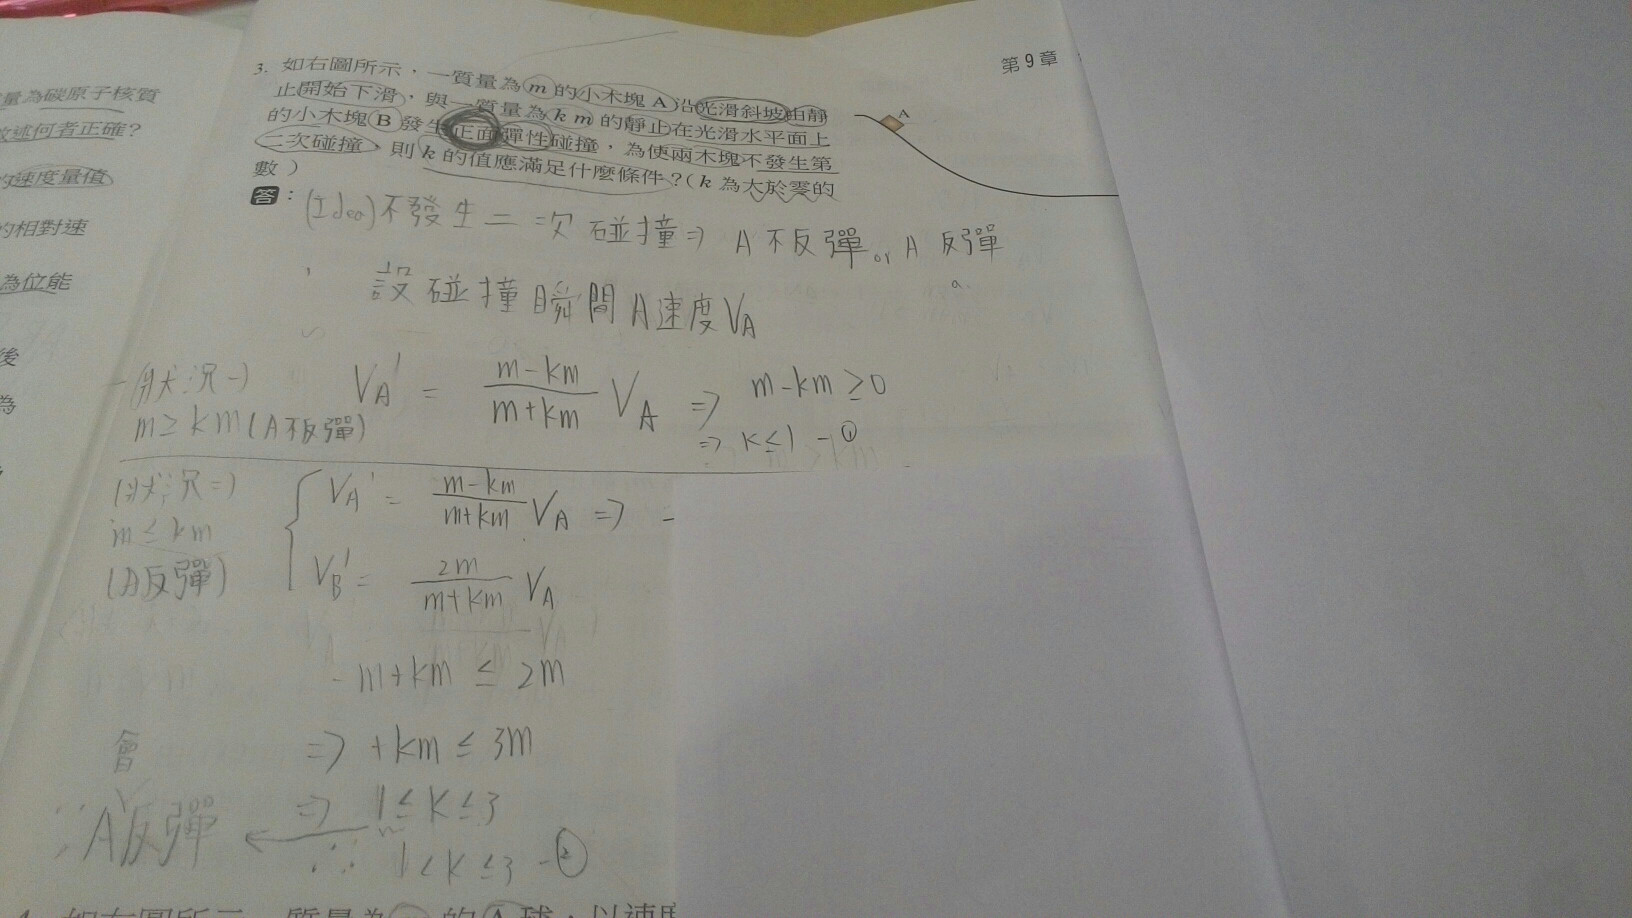 第9章
量為碳原子核質
敘述何者正確?
的速度量值
的相對速
為位能
後
為
3. 如右圖所示，一質量為m的小木塊A沿光滑斜坡由靜
止開始下滑，與一質量為km的靜止在光滑水平面上
的小木塊B發生正面彈性碰撞，為使兩木塊不發生第
二次碰撞，則k的值應滿足什麼條件？(k為大於零的
數)
A
答：(Idea)不發生二次碰撞⇒ A不反彈 or A反彈
設碰撞瞬間A速度VA
(狀況一)
m≥km(A不反彈)
VA' = (m-km)/(m+km) VA ⇒ m-km≥0
⇒ k≤1 -①
(狀況二)
m≤km
(A反彈)
VA' = (m-km)/(m+km) VA ⇒ -
VB' = 2m/(m+km) VA
-m+km ≤ 2m
⇒ +km ≤ 3m
⇒ 1≤k≤3
∵A會反彈
∴ 1<k≤3 -②
如右圖所示，質量為 的A球，以速度